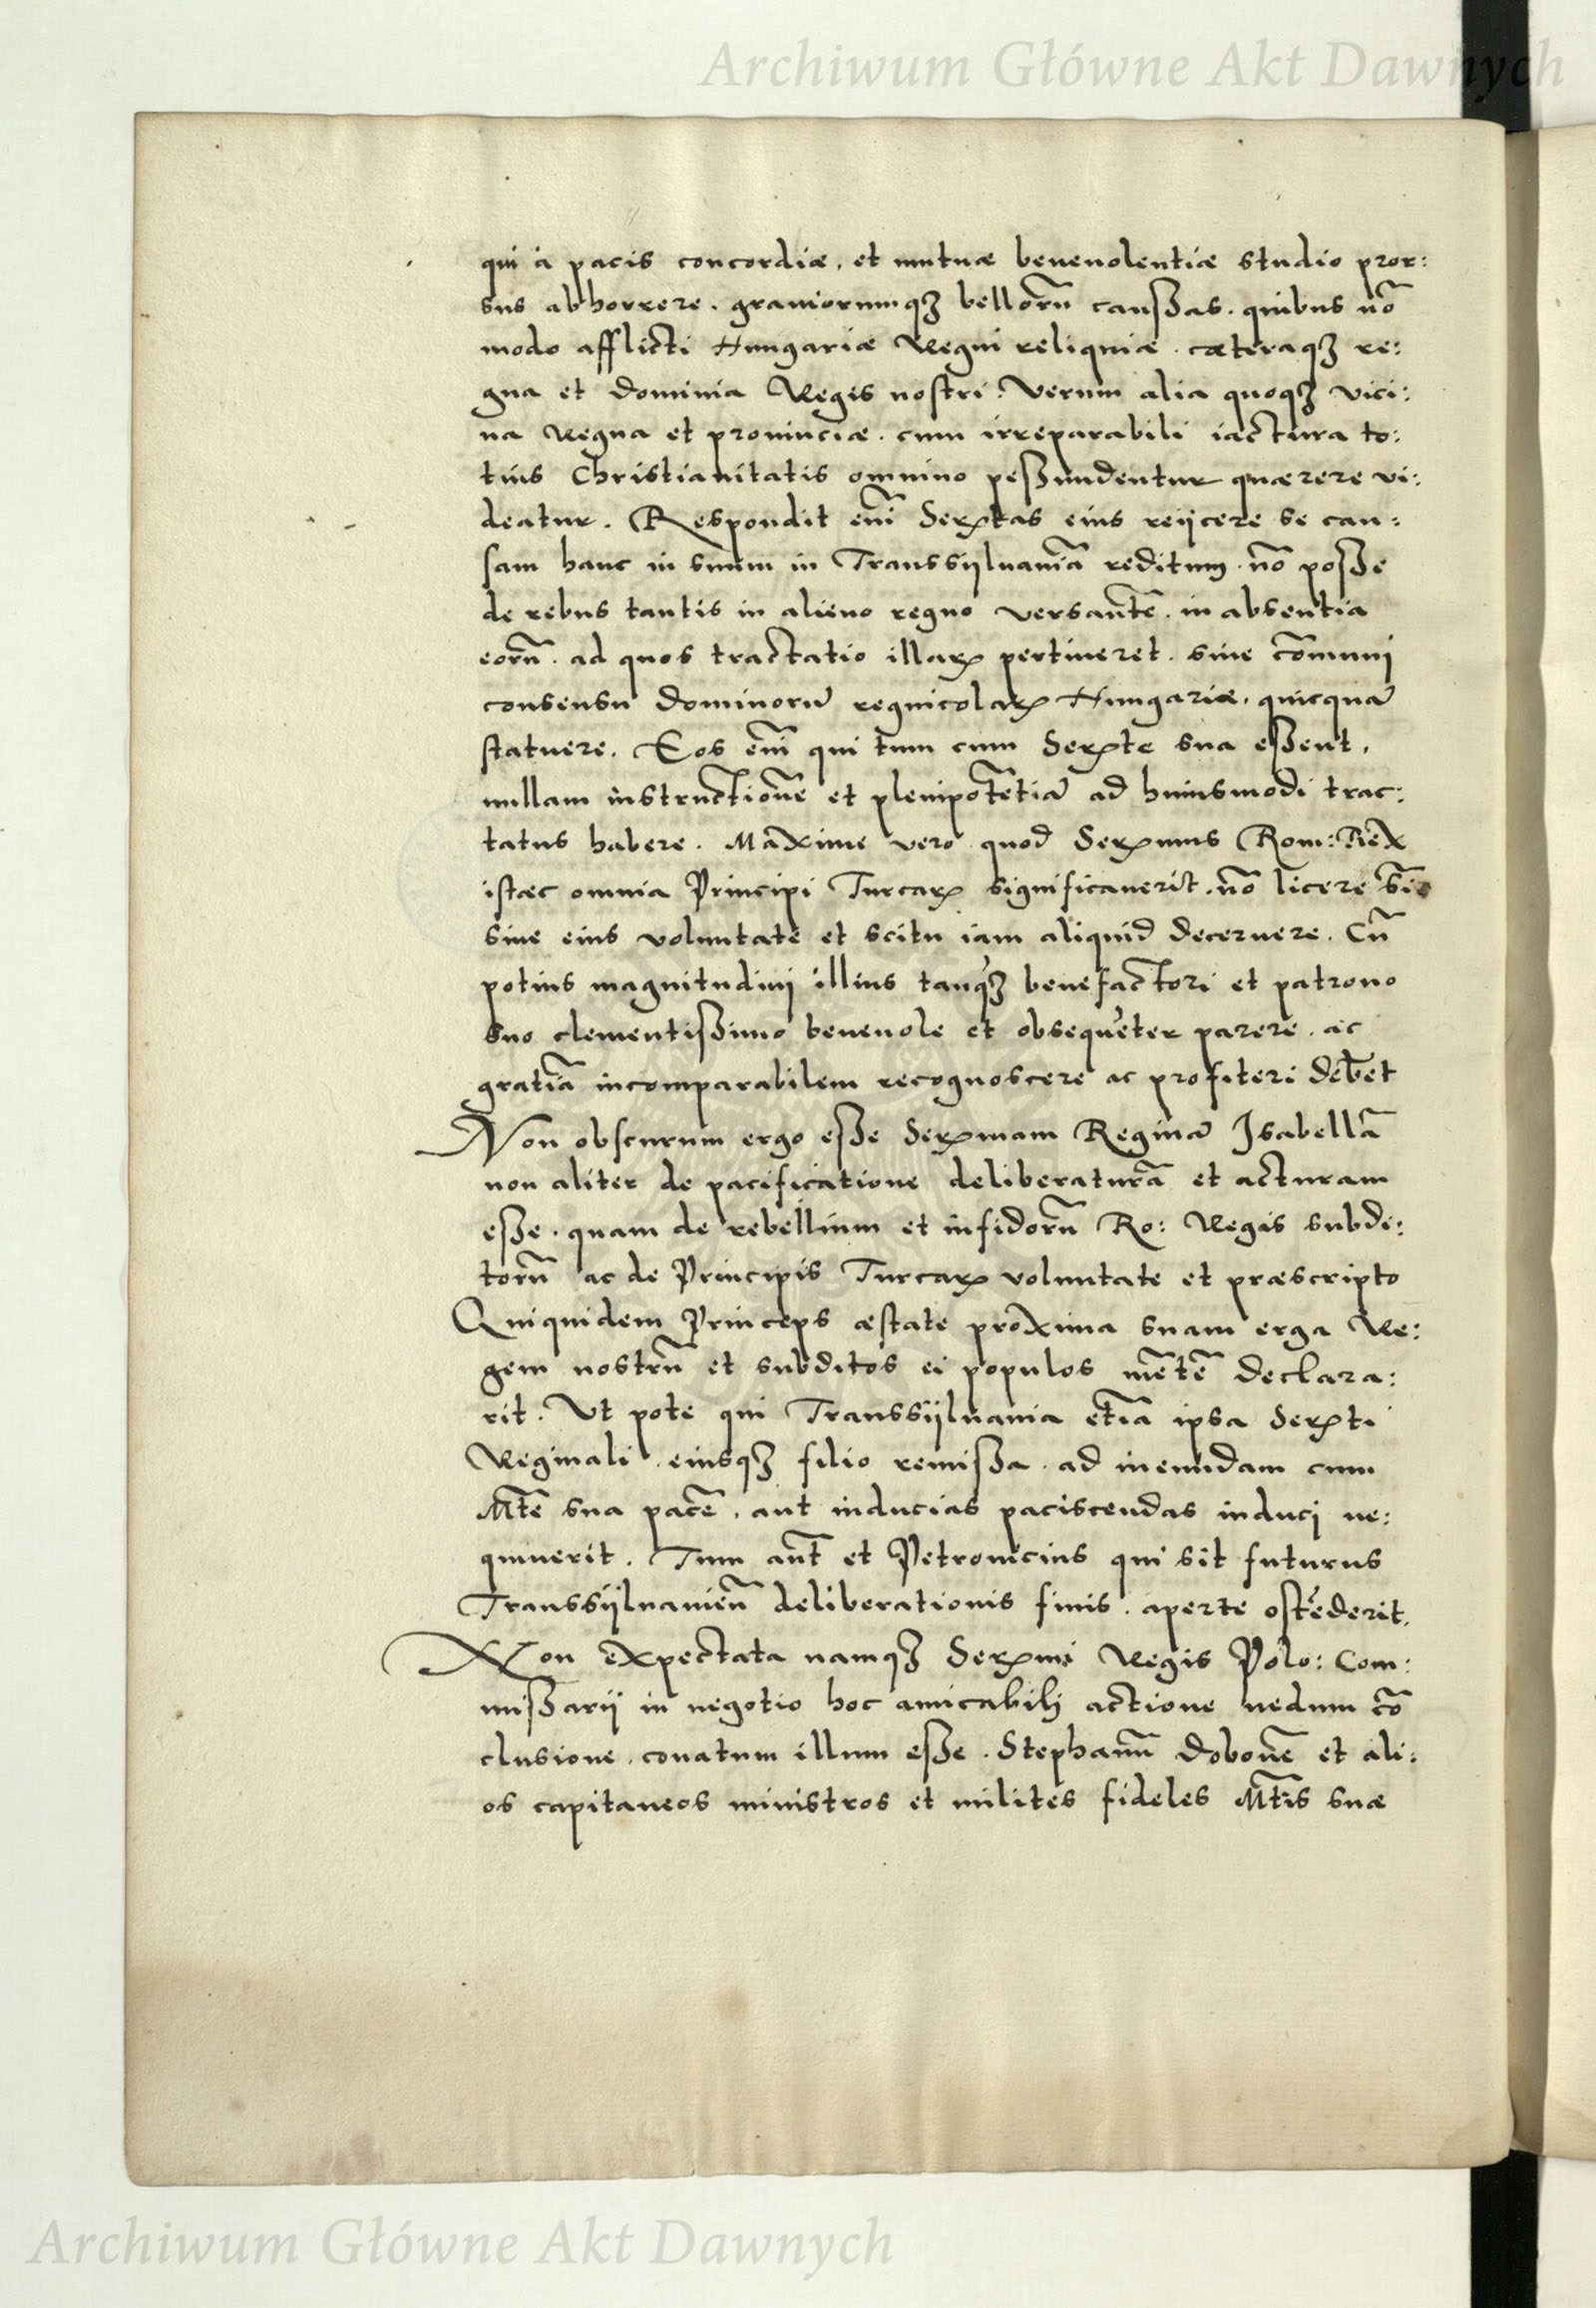 Archiwum Główne Akt Dawnych
qui à pacis concordiæ, et mutuæ beneuolentiæ studio pror:
sus abhorrere. grauiorumqȝ bellorũ caußas. quibus nõ
modo afflicti Hungariæ Regni reliquiæ. cæteraqȝ re:
gna et dominia Regis nostri. Verum alia quoqȝ vici:
na Regna et prouinciæ. cum irreparabili iactura to:
tius Christianitatis omnino peßundentur quærere vi:
deatur. Respondit em̃ Serꝫtas eius reijcere se cau:
sam hanc in suum in Transsÿluaniã reditum. nõ poße
de rebus tantis in alieno regno versantẽ. in absentia
eorũ. ad quos tractatio illaꝝ pertineret. sine cõmuni
consensu dominorũ regnicolaꝝ Hungariæ. quicquã
statuere. Eos em̃ qui tum cum Serꝫte sua eßent.
nullam instructionẽ et plenipotẽtiã ad huiusmodi trac:
tatus habere. Maxime vero quod Serꝫmus Rom: Rex
istæc omnia Principi Turcaꝝ significauerit. nõ licere sibi
sine eius voluntate et scitu iam aliquid decernere. Cũ
potius magnitudini illius tanqȝ benefactori et patrono
suo clementißimo beneuole et obsequẽter parere. ac
gratiã incomparabilem recognoscere ac profiteri deb̃et
Non obscurum ergo eße Serꝫmam Reginã Isabellã
non aliter de pacificatione deliberaturã et acturam
eße. quam de rebellium et infidorũ Ro: Regis subdi:
torũ ac de Principis Turcaꝝ voluntate et præscripto
Quiquidem Princeps æstate proxima suam erga Re:
gem nostrũ et subditos ei populos mẽtẽ declara:
rit. Ut pote qui Transsÿluania etiã ipsa Serꝫti
Reginali. eiusqȝ filio remißa. ad ineundam cum
Mtẽ sua pacẽ. aut inducias paciscendas induci ne:
quiuerit. Tum aũt et Petrouicius qui sit futurus
Transsÿluanieñ deliberationis finis. aperte ostẽderit.
Non expectata namqȝ Serꝫmi Regis Polo: Com:
mißarij in negotio hoc amicabili actione nedum cõ
clusione. conatum illum eße. Stephanũ Dobonẽ et ali:
os capitaneos ministros et milites fideles Mt̃is suæ
Archiwum Główne Akt Dawnych